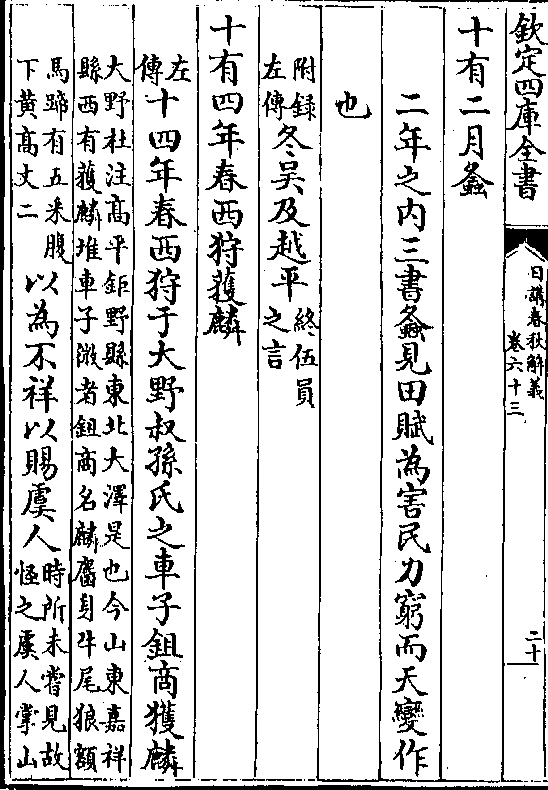 欽定四庫全書
日講春秋解義
卷六十三
二十
十有二月螽
二年之內三書螽見田賦為害民力窮而天變作
也
附録
左傳
冬吳及越平
終伍員
之言
十有四年春西狩獲麟
左
傳
十四年春西狩于大野叔孫氏之車子鉏商獲麟
大野杜注髙平鉅野縣東北大澤是也今山東嘉祥
縣西有獲麟堆車子微者鉏商名麟麕身牛尾狼額
馬蹄有五采腹
下黄髙丈二
以為不祥以賜虞人
時所未嘗見故
怪之虞人掌山